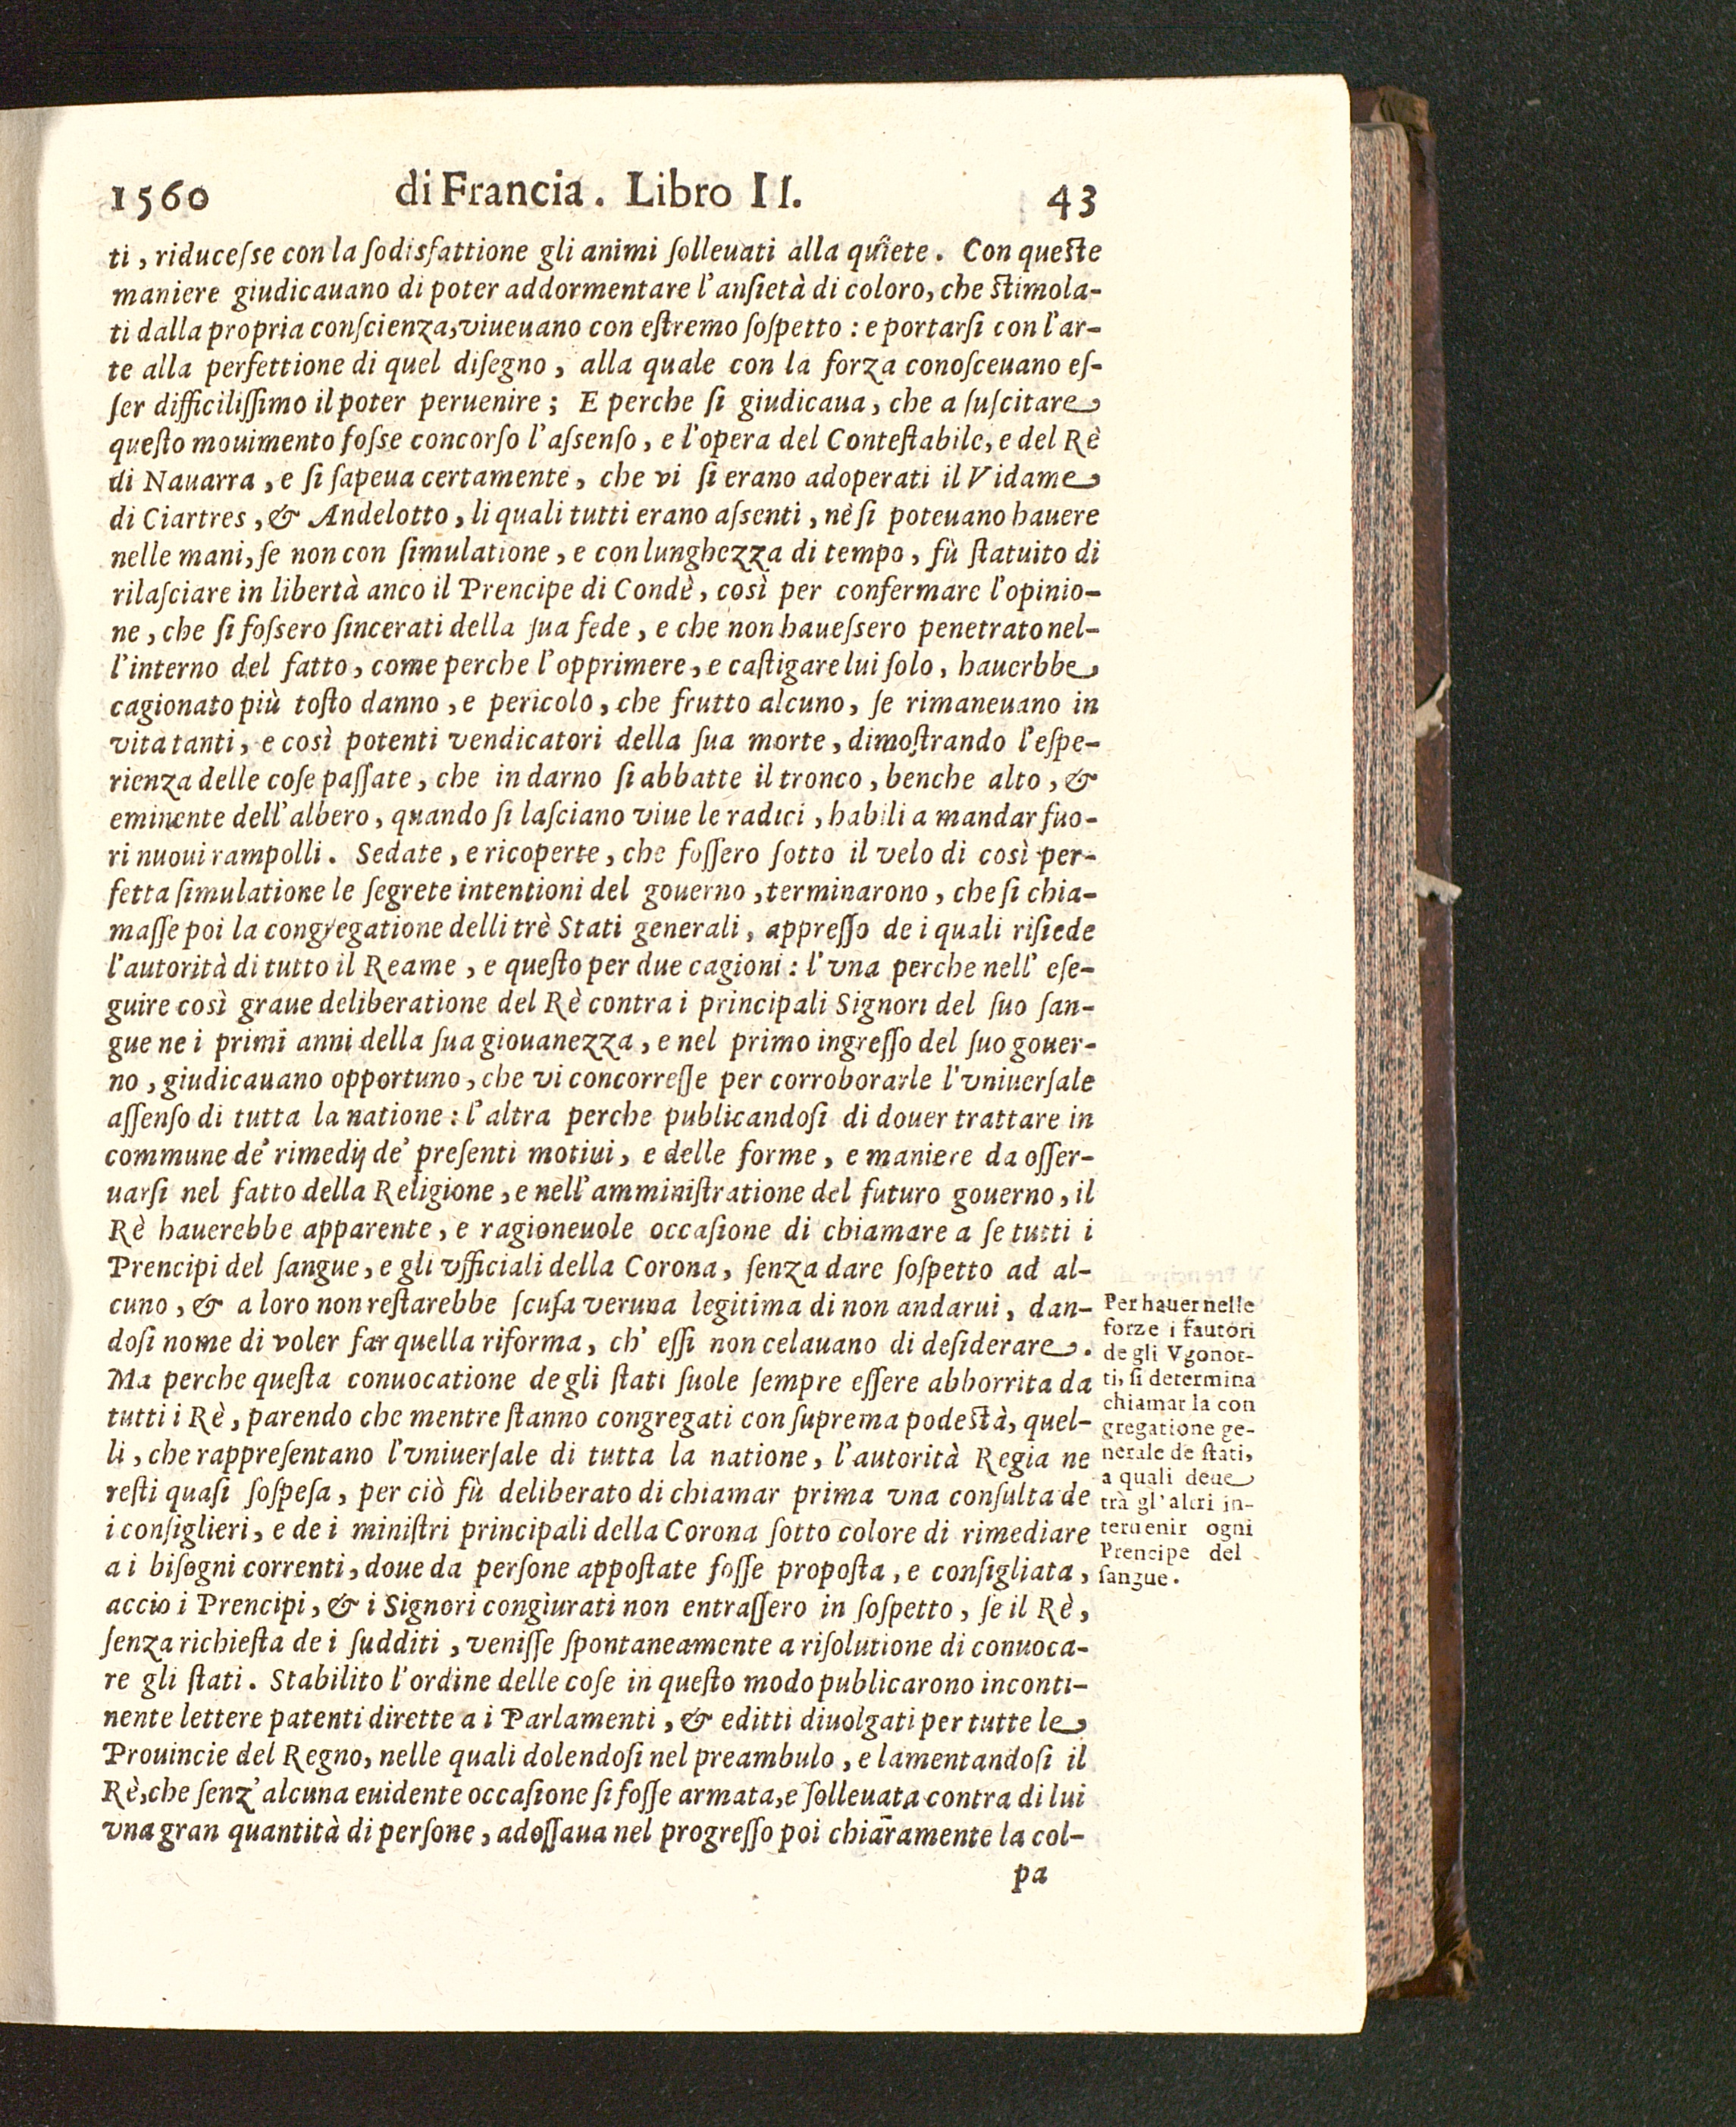 1560 di Francia. Libro II. 43
ti, riduceſse con la ſodisfattione gli animi ſolleuati alla quiete. Con queſte
maniere giudicauano di poter addormentare l'anſietà di coloro, che ſtimola-
ti dalla propria conſcienza, viueuano con eſtremo ſoſpetto: e portarſi con l'ar-
te alla perfettione di quel diſegno, alla quale con la forza conoſceuano eſ-
ſer difficiliſſimo il poter peruenire; E perche ſi giudicaua, che a ſuſcitare
queſto mouimento foſse concorſo l'aſsenſo, e l'opera del Conteſtabile, e del Rè
di Nauarra, e ſi ſapeua certamente, che vi ſi erano adoperati il Vidame
di Ciartres, & Andelotto, li quali tutti erano aſsenti, nè ſi poteuano hauere
nelle mani, ſe non con ſimulatione, e con lunghezza di tempo, fù ſtatuito di
rilaſciare in libertà anco il Prencipe di Condè, così per confermare l'opinio-
ne, che ſi foſsero ſincerati della ſua fede, e che non haueſsero penetrato nel-
l'interno del fatto, come perche l'opprimere, e caſtigare lui ſolo, hauerbbe
cagionato più toſto danno, e pericolo, che frutto alcuno, ſe rimaneuano in
vita tanti, e così potenti vendicatori della ſua morte, dimoſtrando l'eſpe-
rienza delle coſe paſſate, che in darno ſi abbatte il tronco, benche alto, &
eminente dell'albero, quando ſi laſciano viue le radici, habili a mandar fuo-
ri nuoui rampolli. Sedate, e ricoperte, che foſſero ſotto il velo di così per-
fetta ſimulatione le ſegrete intentioni del gouerno, terminarono, che ſi chia-
maſſe poi la congregatione delli trè Stati generali, appreſſo de i quali riſiede
l'autorità di tutto il Reame, e queſto per due cagioni: l'vna perche nell' eſe-
guire così graue deliberatione del Rè contra i principali Signori del ſuo ſan-
gue ne i primi anni della ſua giouanezza, e nel primo ingreſſo del ſuo gouer-
no, giudicauano opportuno, che vi concorreſſe per corroborarle l'vniuerſale
aſſenſo di tutta la natione: l'altra perche publicandoſi di douer trattare in
commune de' rimedij de' preſenti motiui, e delle forme, e maniere da oſſer-
uarſi nel fatto della Religione, e nell'amminiſtratione del futuro gouerno, il
Rè hauerebbe apparente, e ragioneuole occaſione di chiamare a ſe tutti i
Prencipi del ſangue, e gli vfficiali della Corona, ſenza dare ſoſpetto ad al-
cuno, & a loro non reſtarebbe ſcuſa veruna legitima di non andarui, dan-
doſi nome di voler far quella riforma, ch' eſſi non celauano di deſiderare.
Ma perche queſta conuocatione de gli ſtati ſuole ſempre eſſere abborrita da
tutti i Rè, parendo che mentre ſtanno congregati con ſuprema podeſtà, quel-
li, che rappreſentano l'vniuerſale di tutta la natione, l'autorità Regia ne
reſti quaſi ſoſpeſa, per ciò fù deliberato di chiamar prima vna conſulta de
i conſiglieri, e de i miniſtri principali della Corona ſotto colore di rimediare
a i biſogni correnti, doue da perſone appoſtate foſſe propoſta, e conſigliata,
accio i Prencipi, & i Signori congiurati non entraſſero in ſoſpetto, ſe il Rè,
ſenza richieſta de i ſudditi, veniſſe ſpontaneamente a riſolutione di conuoca-
re gli ſtati. Stabilito l'ordine delle coſe in queſto modo publicarono inconti-
nente lettere patenti dirette a i Parlamenti, & editti diuolgati per tutte le
Prouincie del Regno, nelle quali dolendoſi nel preambulo, e lamentandoſi il
Rè, che ſenz' alcuna euidente occaſione ſi foſſe armata, e ſolleuata contra di lui
vna gran quantità di perſone, adoſſaua nel progreſſo poi chiaramente la col-
pa
Per hauer nelle
forze i fautori
de gli Vgonot-
ti, ſi determina
chiamar la con
gregatione ge-
nerale de ſtati,
a quali deue
trà gl'altri in-
teruenir ogni
Prencipe del
ſangue.